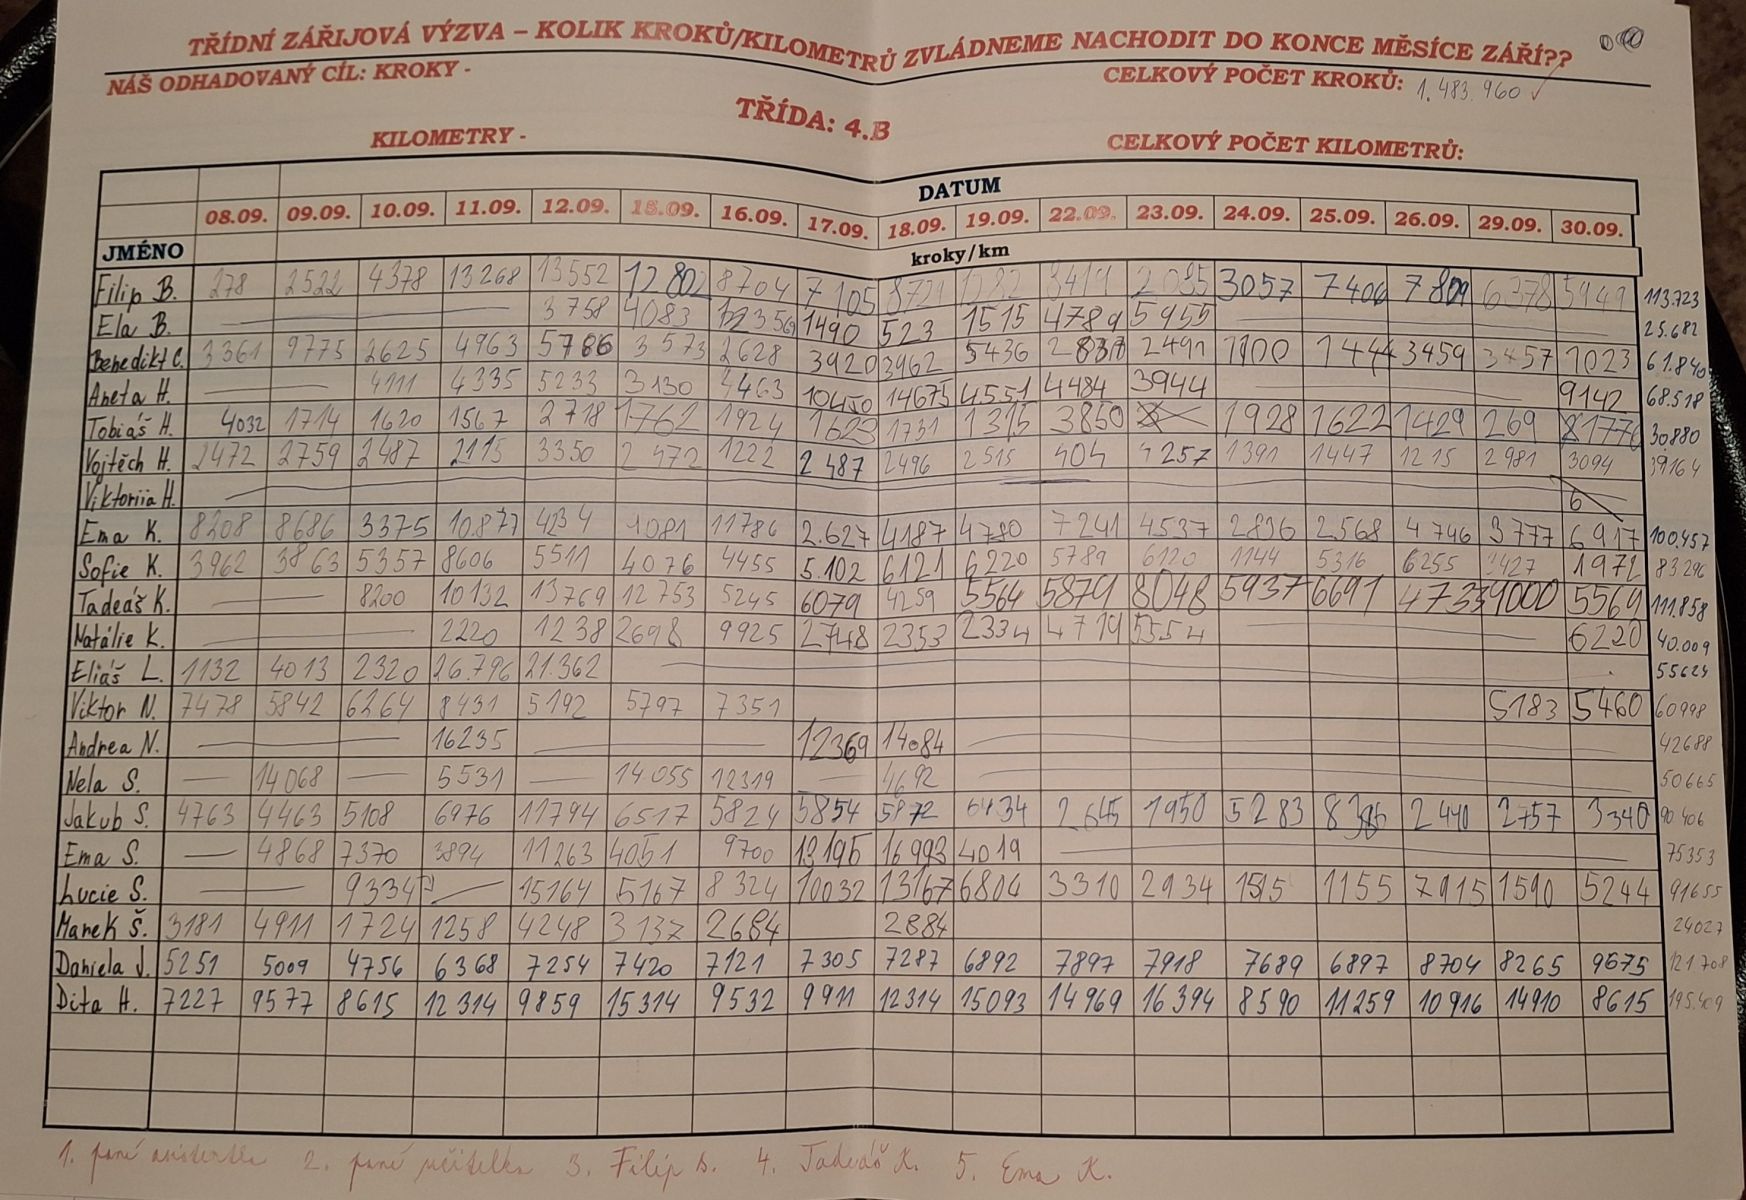 TŘÍDNÍ ZÁŘIJOVÁ VÝZVA – KOLIK KROKŮ/KILOMETRŮ ZVLÁDNEME NACHODIT DO KONCE MĚSÍCE ZÁŘÍ??
NÁŠ ODHADOVANÝ CÍL: KROKY - CELKOVÝ POČET KROKŮ: 1.483.960 ✓
TŘÍDA: 4.B
KILOMETRY - CELKOVÝ POČET KILOMETRŮ:
DATUM
08.09. 09.09. 10.09. 11.09. 12.09. 15.09. 16.09. 17.09. 18.09. 19.09. 22.09. 23.09. 24.09. 25.09. 26.09. 29.09. 30.09.
JMÉNO kroky/km
Filip B. 278 2522 4378 13268 13552 12802 8704 7105 8721 3419 3057 7406 7809 6378 5949 113.723
Ela B. 3758 4083 1490 523 1515 4789 5955 25.682
Benedikt C. 3361 9775 2625 4963 5766 3573 2628 3920 3962 5436 2491 1100 1444 3459 3457 1023 61.840
Aneta H. 4111 4335 5233 3130 4463 10450 14675 4551 4484 3944 9142 68.518
Tobiáš H. 4032 1714 1620 1567 2718 1762 1924 1623 1731 1315 3850 1928 1622 1429 269 30880
Vojtěch H. 2472 2759 2487 2115 3350 2472 1222 2487 2496 2515 404 1391 1447 1215 2981 3094 39164
Viktoriia H. 6
Ema K. 8208 8686 3375 10.877 4234 1081 11786 2.627 4187 4780 7241 4537 2836 2568 4746 3777 6917 100.457
Sofie K. 3962 3863 5357 8606 5511 4076 4455 5.102 6121 6220 5789 6120 1144 5316 6255 1972 83296
Tadeáš K. 8200 10132 13769 12753 5245 6079 4259 5564 5879 8048 5937 6691 4733 9000 5569 111.858
Natálie K. 2220 1238 2698 9925 2748 2353 2334 4719 5554 6220 40.009
Eliáš L. 1132 4013 2320 26.796 21.362 55624
Viktor N. 7478 5842 6264 8431 5192 5797 7351 5183 5460 60998
Andrea N. 16235 12369 14084 42688
Nela S. 14068 5531 14055 12319 4692 50665
Jakub S. 4763 4463 5108 6976 11794 6517 5824 5854 5872 6434 2645 1950 5283 8386 2440 2757 3340 90406
Ema S. 4868 7370 3894 11263 4051 9700 13195 16993 4019 75353
Lucie S. 9334 15164 5167 8324 10032 13167 6804 3310 2934 1515 1155 7915 1590 5244 91655
Marek Š. 3181 4911 1724 1258 4248 3137 2684 2884 24027
Daniela J. 5251 5009 4756 6368 7254 7420 7121 7305 7287 6892 7897 7918 7689 6897 8704 8265 9675 121708
Dita H. 7227 9577 8615 12314 9859 15314 9532 9911 12314 15093 14969 16394 8590 11259 10916 14910 8615 195.409
1. paní asistentka 2. paní učitelka 3. Filip B. 4. Tadeáš K. 5. Ema K.